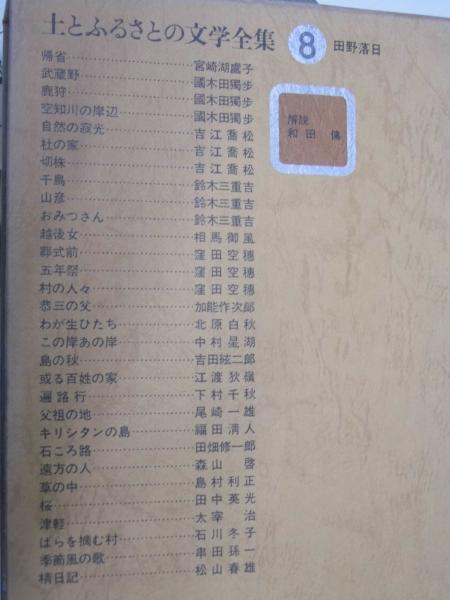 土とふるさとの文学全集 8 田野落日
解説
和田 傳
帰省 宮崎湖處子
武蔵野 國木田獨歩
鹿狩 國木田獨歩
空知川の岸辺 國木田獨歩
自然の寂光 吉江喬松
杜の家 吉江喬松
切株 吉江喬松
千鳥 鈴木三重吉
山彦 鈴木三重吉
おみつさん 鈴木三重吉
越後女 相馬御風
葬式前 窪田空穂
五年祭 窪田空穂
村の人々 窪田空穂
恭三の父 加能作次郎
わが生ひたち 北原白秋
この岸あの岸 中村星湖
島の秋 吉田絃二郎
或る百姓の家 江渡狄嶺
遍路行 下村千秋
父祖の地 尾崎一雄
キリシタンの島 福田清人
石ころ路 田畑修一郎
遠方の人 森山 啓
草の中 島村利正
桜 田中英光
津軽 太宰 治
ばらを摘む村 石川冬子
季節風の歌 串田孫一
日記 松山春雄